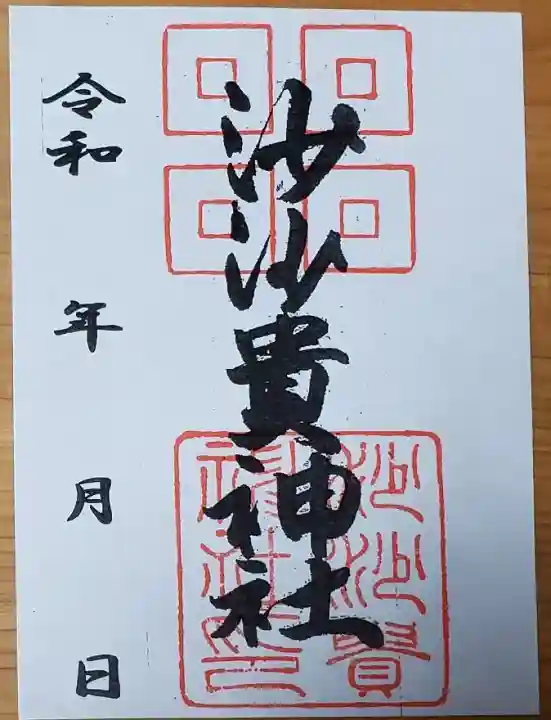 沙沙貴神社
沙沙貴
神社之印
令和 年 月 日